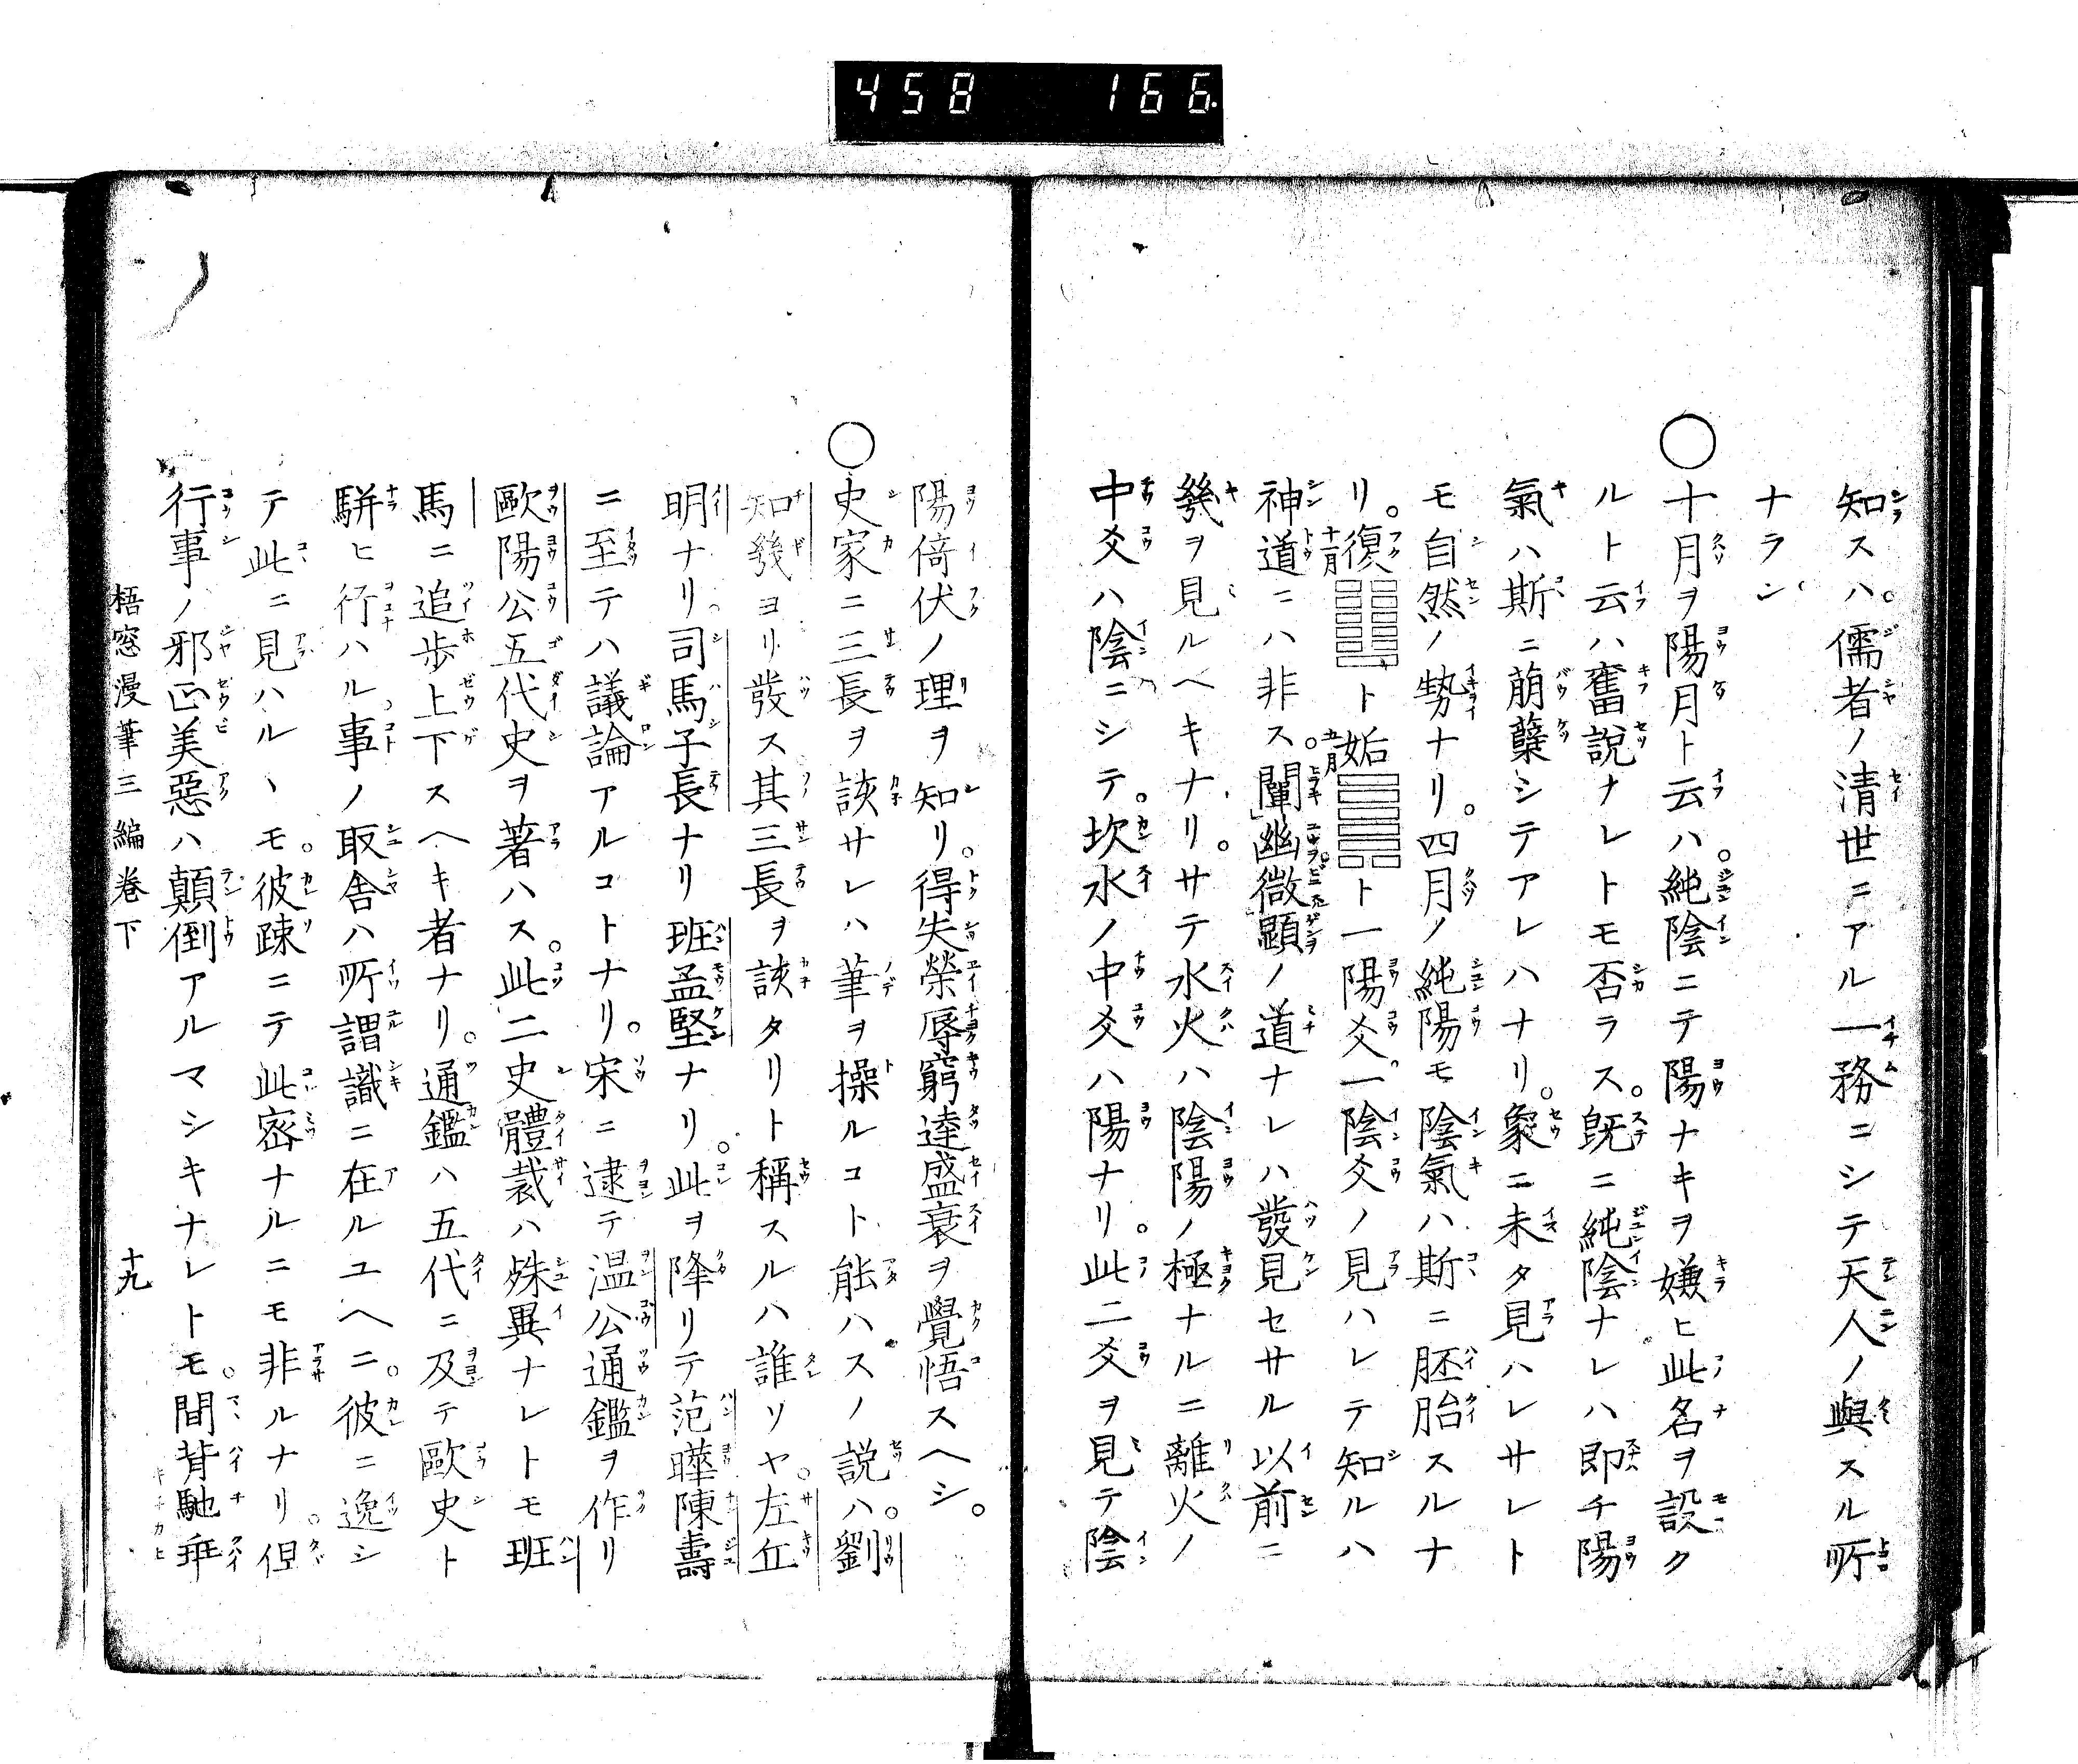 458 166
知スハ。儒者ノ清世ニアル一務ニシテ天人ノ與スル所
ナラン
○十月ヲ陽月ト云ハ。純陰ニテ陽ナキヲ嫌ヒ此名ヲ設ク
ルト云ハ舊說ナレトモ否ラス。旣ニ純陰ナレハ即チ陽
氣ハ斯ニ萠蘖シテアレハナリ。象ニ未タ見ハレサレト
モ自然ノ勢ナリ。四月ノ純陽モ陰氣ハ斯ニ胚胎スルナ
リ。復十一月䷗ト姤五月䷫ト一陽爻一陰爻ノ見ハレテ知ルハ
神道ニハ非ス。闡幽微顯ノ道ナレハ發見セサル以前ニ
幾ヲ見ルヘキナリ。サテ水火ハ陰陽ノ極ナルニ離火ノ
中爻ハ陰ニシテ。坎水ノ中爻ハ陽ナリ。此二爻ヲ見テ陰
陽倚伏ノ理ヲ知リ。得失榮辱窮達盛衰ヲ覺悟スヘシ。
○史家ニ三長ヲ該サレハ筆ヲ操ルコト能ハスノ説ハ。劉
知幾ヨリ發ス其三長ヲ該タリト稱スルハ誰ソヤ。左丘
明ナリ。司馬子長ナリ班孟堅ナリ。此ヲ降リテ范曄陳壽
ニ至テハ議論アルコトナリ。宋ニ逮テ温公通鑑ヲ作リ
歐陽公五代史ヲ著ハス。此二史體裁ハ殊異ナレトモ班
馬ニ追歩上下スヘキ者ナリ。通鑑ハ五代ニ及テ歐史ト
駢ヒ行ハル事ノ取舎ハ所謂識ニ在ルユヘニ。彼ニ逸シ
テ此ニ見ハルヽモ。彼疎ニテ此密ナルニモ非ルナリ。但
行事ノ邪正美惡ハ顛倒アルマシキナレトモ。間背馳乖
梧窓漫筆三編卷下 十九